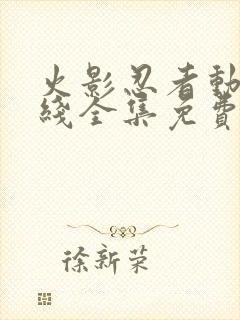 火影忍者動
綫全集免費
徐新荣